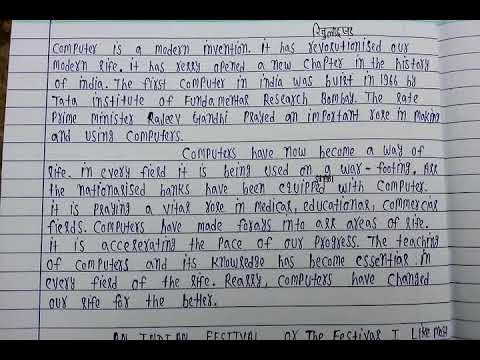 Computer is a modern invention. it has revolutionised our
modern life. it has relly opened a new chapter in the history
of india. The first computer in india was built in 1966 by
Tata institute of Fundamental Research Bombay. The late
Prime Minister Rajeev Gandhi Played an important role in making
and using computers.
Computers have now become a way of
life. in every field it is being used on a war-footing. All
the nationalised banks have been equipped with computer.
it is playing a vital role in medical, educational, commercial
fields. Computers have made forays into all areas of life.
it is accelerating the pace of our progress. The teaching
of computers and its knowledge has become essential in
every field of the life. Really, computers have changed
our life for the better.
AN INDIAN FESTIVAL or The Festival I Like Most